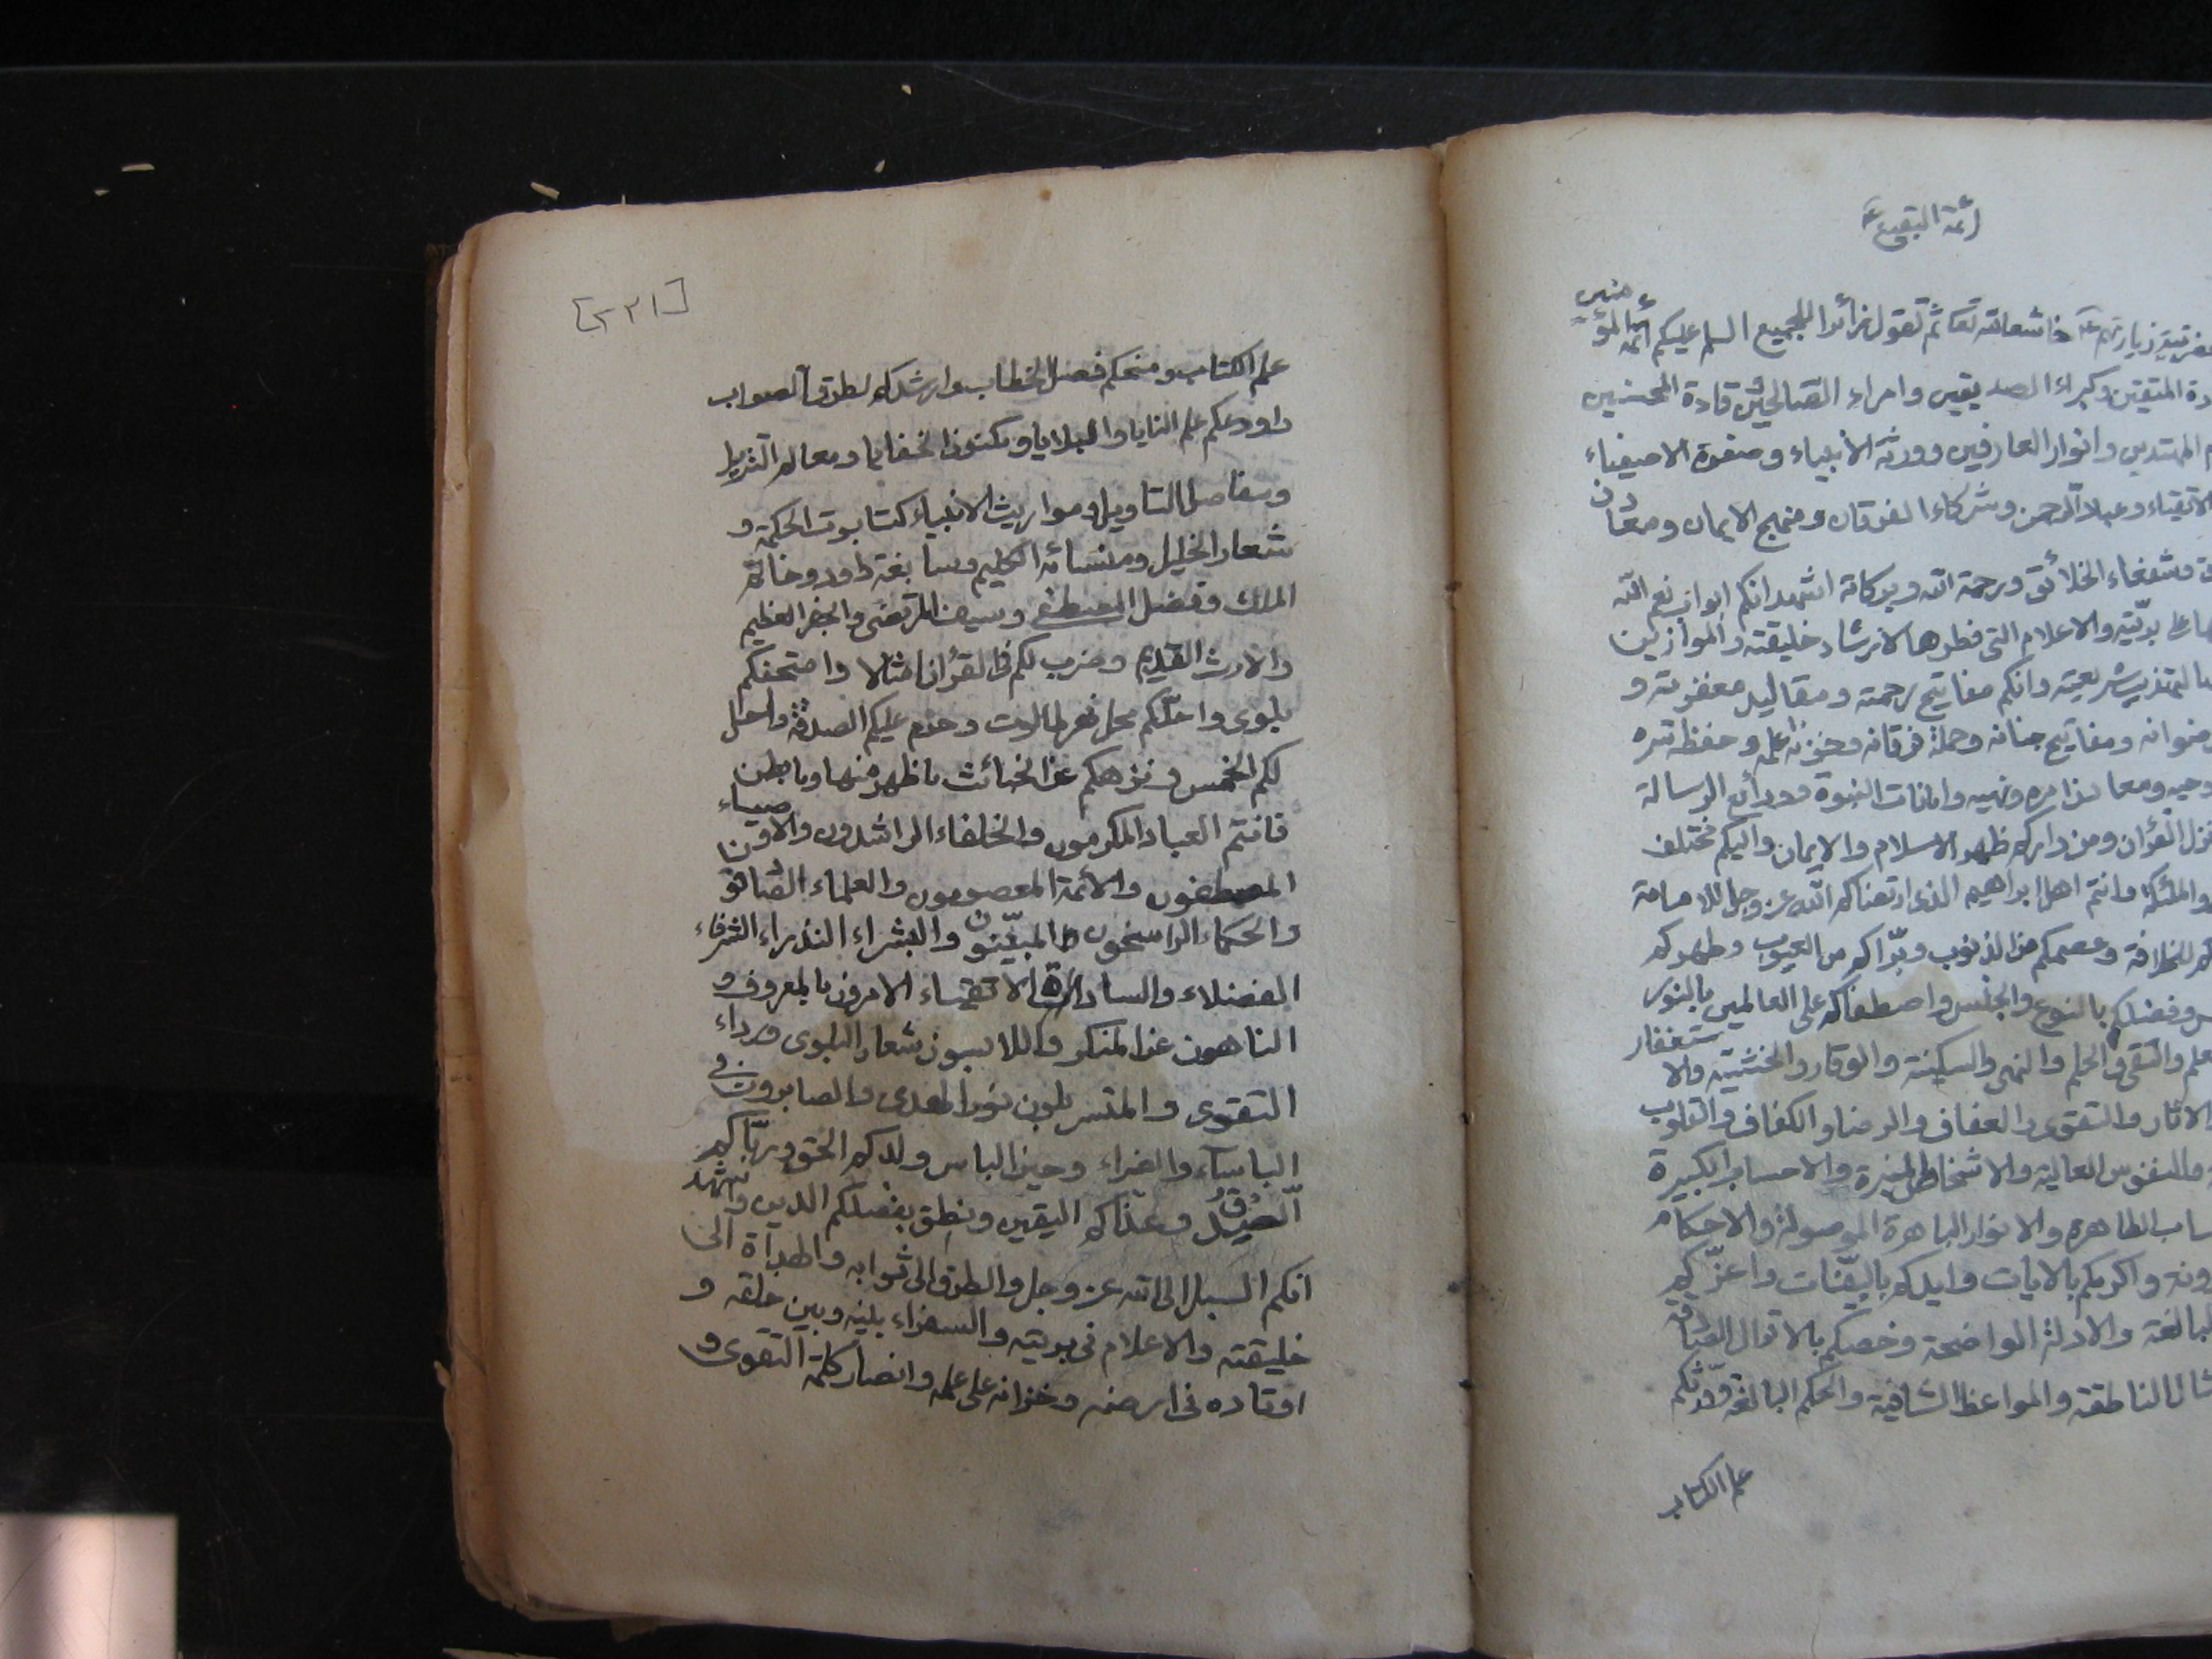 أئمة البقيع ع
زيارتهم ع خاشعا لله تعا ثم تقول زائرا للجميع السلم عليكم أئمة المؤمنين
المتقين وكبراء الصديقين وامراء الصالحين وقادة المحسنين
المهتدين وانوار العارفين وورثة الأنبياء وصفوة الاصفياء
الاتقياء وعباد الرحمن وشركاء الفرقان ومنهج الايمان ومعادن
وشفعاء الخلائق ورحمة الله وبركاته اشهد انكم ابواب نعم الله
على بريّته والاعلام التي فطرها لارشاد خليقته والموازين
لتهذيب شريعته وانكم مفاتيح رحمته ومقاليد مغفرته و
رضوانه ومفاتيح جنانه وحملة فرقانه وخزنة علمه وحفظة سره
وحيه ومعادن امره ونهيه وامانات النبوة وودائع الرسالة
نزل القرآن ومن داركم ظهر الاسلام والايمان واليكم مختلف
والملئكة وانتم اهل ابراهيم الذي ارتضاكم الله عز وجل للامامة
للخلافة وعصمكم من الذنوب وبرّاكم من العيوب وطهركم
وفضلكم بالنوع والجنس واصطفاكم على العالمين بالنور
والتقى والحلم والنهى والسكينة والوقار والخشية والاستغفار
الاثار والتقوى والعفاف والرضا والكفاف والقلوب
والنفوس العالية والاشخاص المنيرة والاحساب الكبيرة
الطاهرة والانوار الباهرة الموصولة والاحكام
واكرمكم بالايات وايدكم بالبيّنات واعزّكم
البالغة والادلة الواضحة وخصكم بالاقوال الصادقة
الناطقة والمواعظ الشافية والحكم البالغة وورّثكم
علم الكتاب
[٢٣١]
علم الكتاب ومنحكم فصل الخطاب وارشدكم لطرق الصواب
واودعكم علم المنايا والبلايا ومكنون الخفايا ومعالم التنزيل
ومفاصل التاويل ومواريث الانبياء كتابوت الحكمة و
شعار الخليل ومنسأة الكليم وسابغة داود وخاتم
الملك وفضل المصطفى وسيف المرتضى والجفر العظيم
والارث القديم وضرب لكم في القرآن امثالا وامتحنكم
بلوى واحلّكم محل نهر طالوت وحرم عليكم الصدقة واحل
لكم الخمس ونزهكم عن الخبائث ما ظهر منها وما بطن
فانتم العباد المكرمون والخلفاء الراشدون والاوصياء
المصطفون والأئمة المعصومون والعلماء الصادقون
والحكماء الراسخون المبيّنون والبشراء النذراء الشرفاء
الفضلاء والسادة الاتقياء الامرون بالمعروف و
الناهون عن المنكر واللابسون شعار البلوى ورداء
التقوى والمتسربلون نور الهدى والصابرون في
الباساء والضراء وحين الباس ولدكم الحق وربّاكم
الصدق وغذاكم اليقين ونطق بفضلكم الدين واشهد
انكم السبل الى الله عز وجل والطرق الى ثوابه والهداة الى
خليقته والاعلام في بريته والسفراء بينه وبين خلقه و
اوتاده في ارضه وخزانه على علمه وانصار كلمة التقوى و